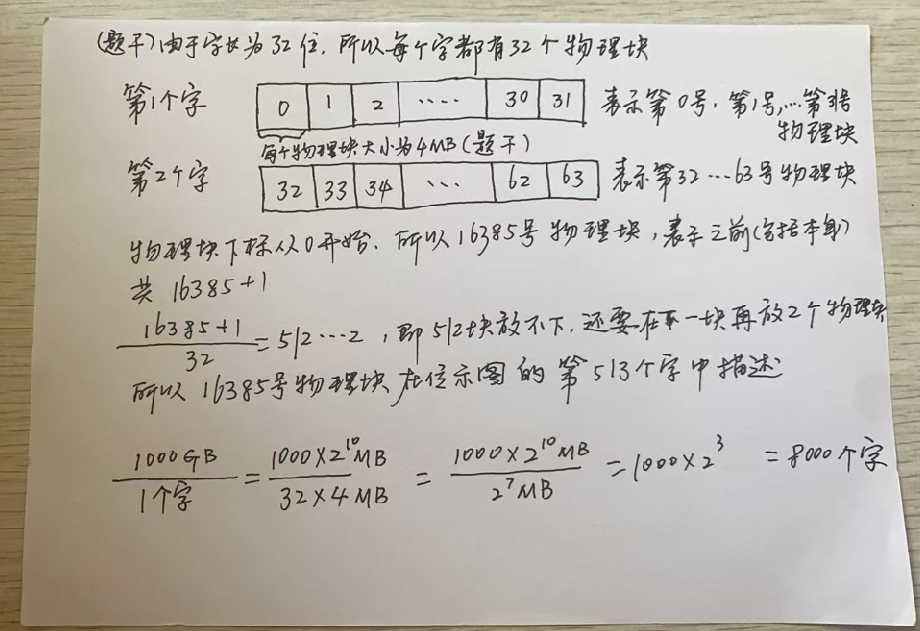 (题干)由于字长为32位,所以每个字都有32个物理块
第1个字 0 1 2 .... 30 31 表示第0号,第1号,...第31号
物理块
每个物理块大小为4MB(题干)
第2个字 32 33 34 ... 62 63 表示第32...63号物理块
物理块下标从0开始.所以16385号物理块,表示之前(包括本身)
共 16385+1
16385+1/32=512...2,即512块放不下.还要在下一块再放2个物理块
所以16385号物理块在位示图的第513个字中描述
1000GB/1个字 = 1000×2^10MB/32×4MB = 1000×2^10MB/2^7MB = 1000×2^3 = 8000个字